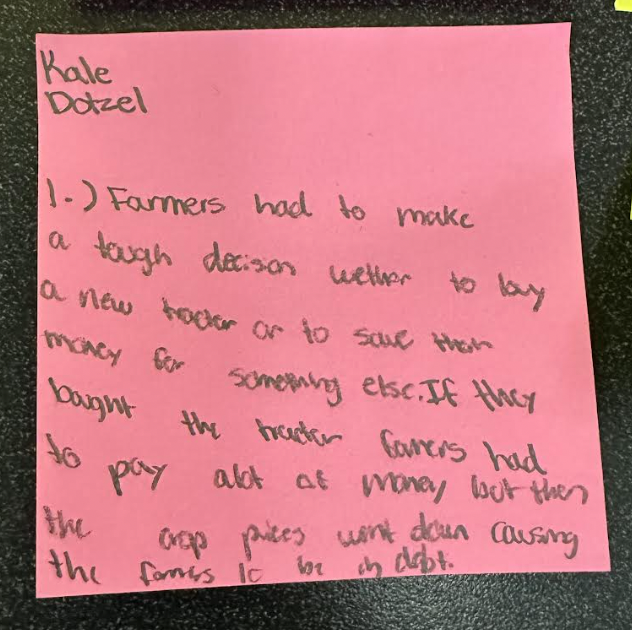 Kale
Dotzel
1.) Farmers had to make
a tough decison wether to buy
a new tracter or to save their
money for something else. If they
bought the tracter farmers had
to pay alot of money but then
the crop prices went down causing
the farmers to be in debt.